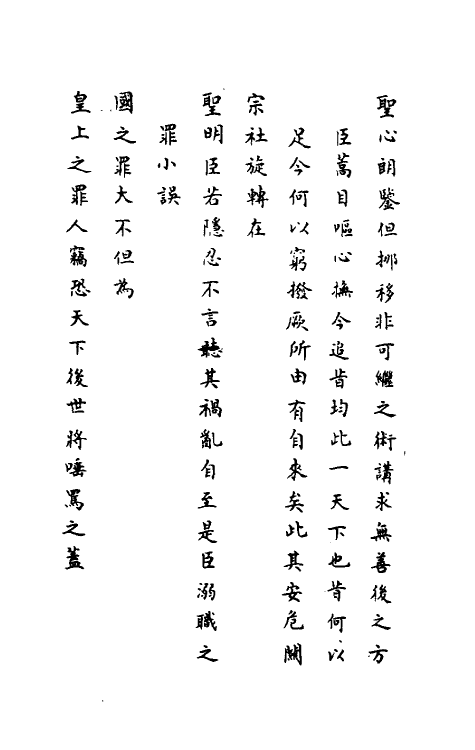 聖心朗鑒但挪移非可繼之術講求無善後之方
臣蒿目嘔心撫今追昔均此一天下也昔何以
足今何以窮撥厥所由有自來矣此其安危關
宗社旋轉在
聖明臣若隱忍不言聽其禍亂自至是臣溺職之
罪小誤
國之罪大不但為
皇上之罪人竊恐天下後世將唾罵之蓋